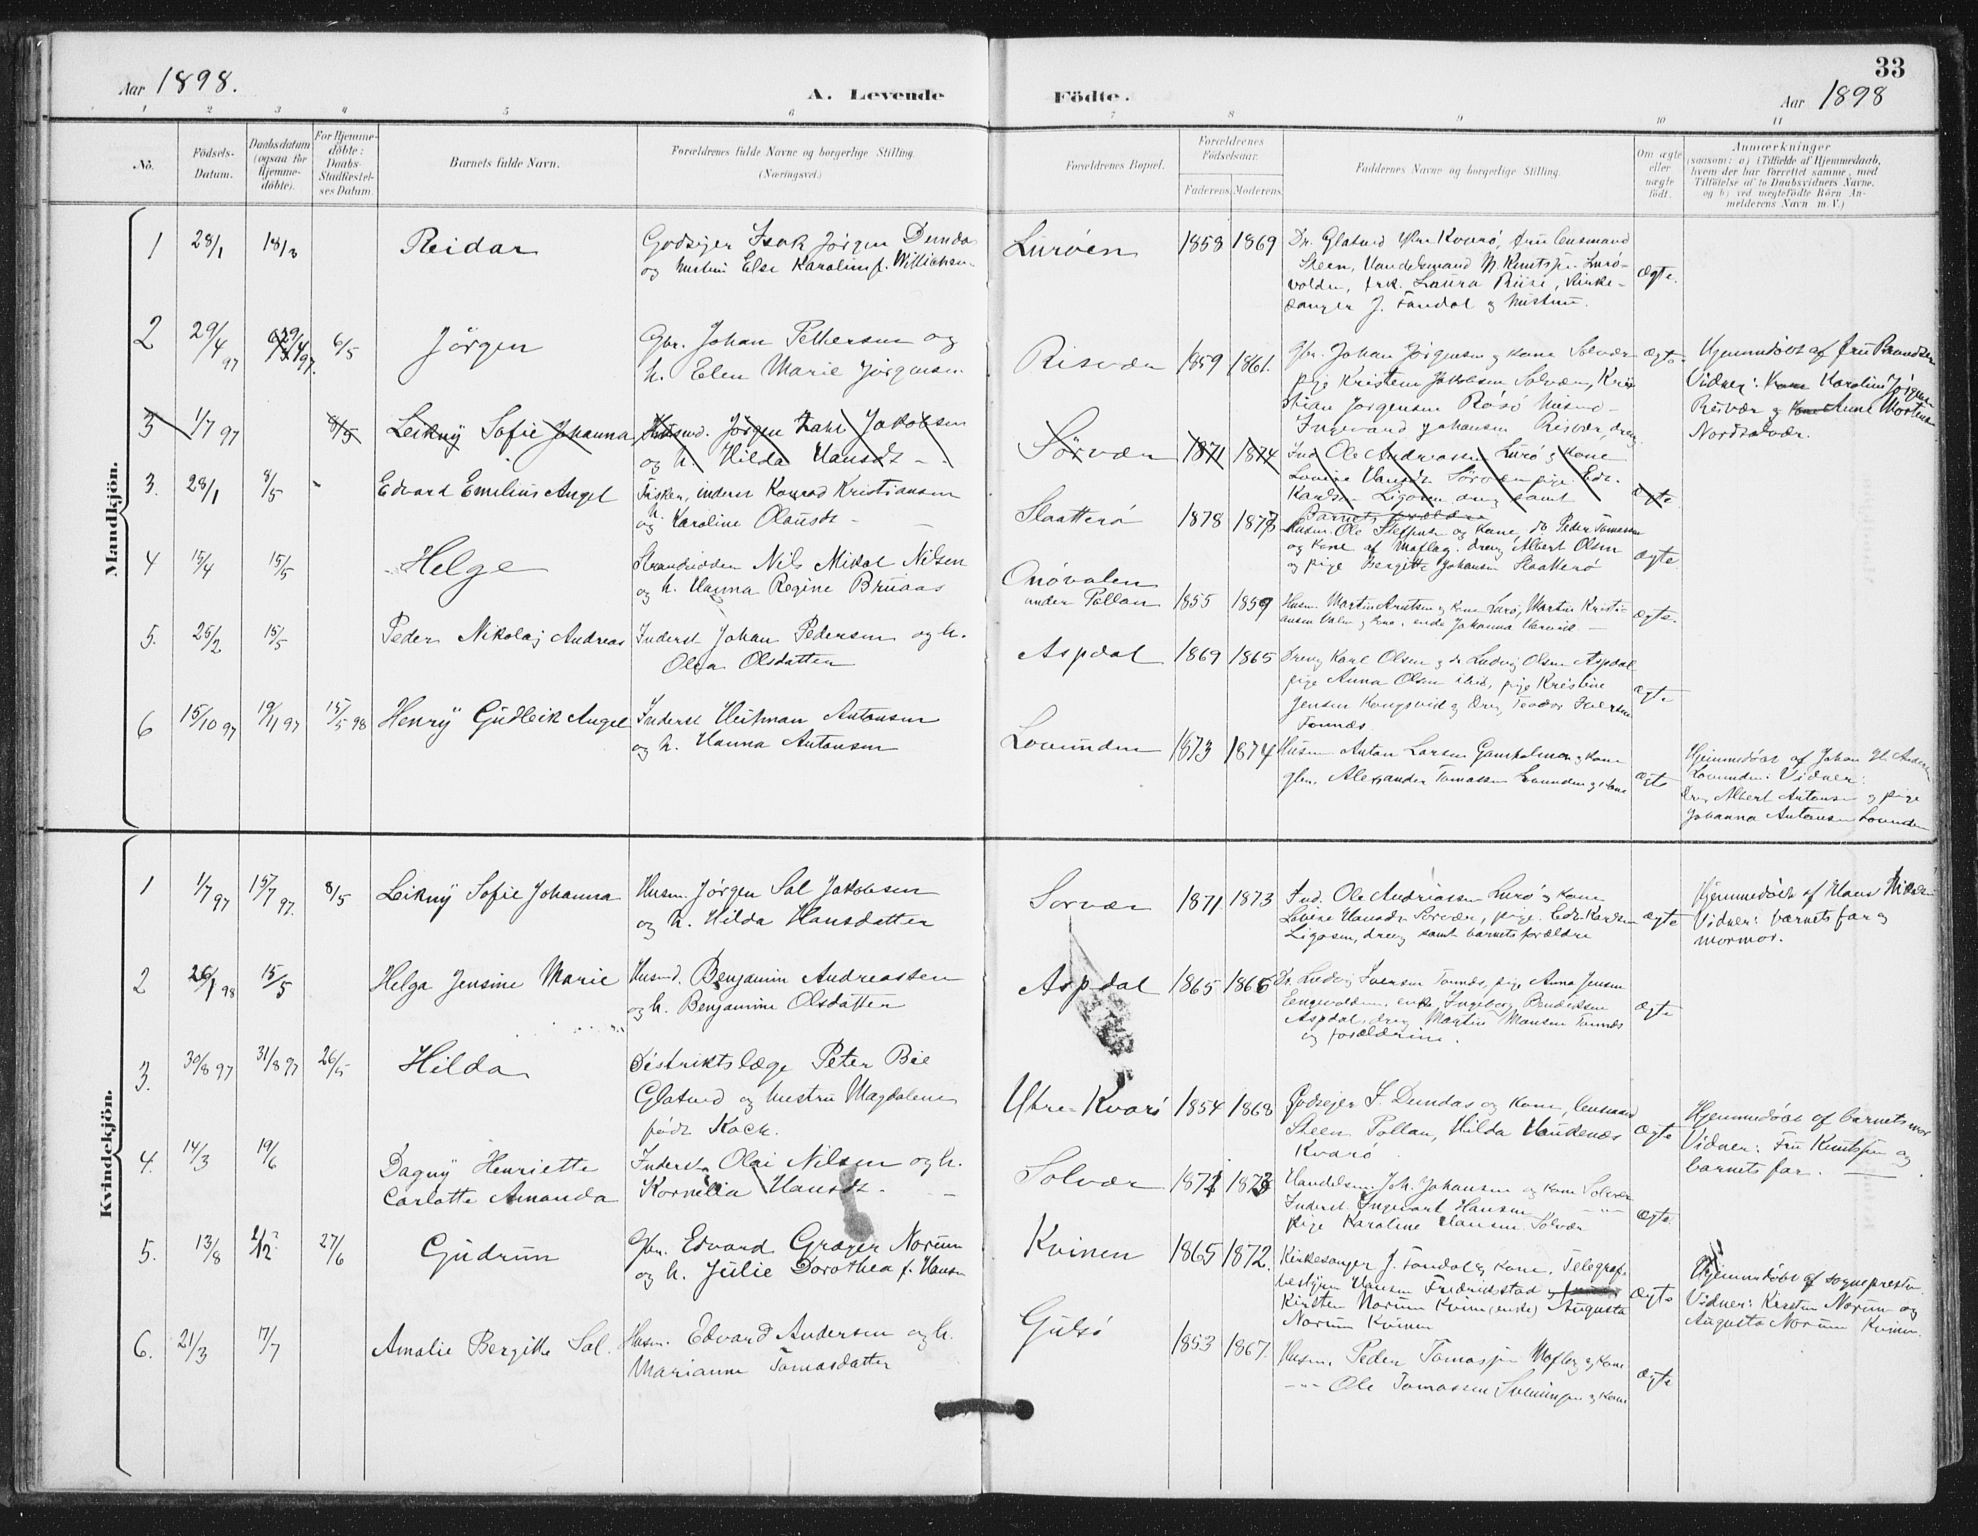 33
Aar 1898.
A. Levende
Födte.
Aar 1898
1 2 3 4 5 6 7 8 9 10 11
No.
Födsels-Datum.
Daabsdatum (ogsaa for Hjemme-döbte).
For Hjemme-döbte: Daabs-Stadfæstel-ses Datum.
Barnets fulde Navn.
Forældrenes fulde Navne og borgerlige Stilling. (Næringsvei.)
Forældrenes Bopæl.
Forældrenes Födselsaar.
Faderens Moderens
Faddernes Navne og borgerlige Stilling.
Om ægte eller uægte födt.
Anmærkninger
(saasom: a) i Tilfælde af Hjemmedaab, hvem der har forrettet samme, med Tilföielse af to Daabsvidners Navne, og b) ved uægtefödte Börn An-melderens Navn m. V.)
Mandkjön.
1 28/1 18/3 Reidar
Godseier Isak Jørgen Dundas
og hustru Else Karoline f.
Lurøen 1858 1869
Dr. Glatved Ytre Kvarø, fru lensmand
Steen, Handelsmand Knutsen Lurø-
volden, frk. Laura Riise, Kirke-
sanger J. Tandal og hustru.
ægte.
2 29/4 97 6/5 Jørgen
Gbr. Johan Pettersen og
h. Elen Marie Jørgensen
Risvær 1859 1861.
Gbr. Johan Jørgensen og kone Solvær
pige Kristine Jakobsen Solvær, Kris-
tian Jørgensen Røsø
Ingevard Johansen Risvær, dreng
ægte.
Hjemmedøbt af fru
Vidner: Karoline
Risvær og Anne
Nordsolvær.
3 1/7 97 8/5 Leikny Sofie Johanna
Husmd. Jørgen Jakobsen
og h. Hilda Hansdt.
Sörvær 1871 1874
Ind. Ole Andreassen Lurø og kone
Lovise Hansdt. Sörvær pige. Edv.
Karlsen Ligosen, dreng samt
Barnets forældre
ægte
3. 28/1 8/5 - Edvard Emilius Angel
Fisker, inderst Konrad Kristiansen
og h. Karoline Olausdt.
Slaatterø 1878 1873
Husm. Ole Steffens og kone, do Peder Tomassen
og kone af Moflag. dreng Albert Olsen
og pige Bergitte Johansen Slaatterø
ægte.
4 15/4 15/5 Helge
Strandsidder Nils Mikal Nilsen
og h. Hanna Regine Bruaas
Onøvalen
under Pollan 1855 1859
Husm. Martin Arntsen og kone Lurø, Martin Kristi-
ansen
ægte.
5. 25/2 15/5 Peder Nikolaj Andreas
Inderst Johan Pedersen og h.
Olea Olsdatter
Aspdal 1869 1865
Dreng Karl Olsen og do Ludvig Olsen Aspdal
pige Anna Olsen ibid, pige Kristine
Jensen Kongsvid og dreng
Tonnes
ægte
6 15/10 97 19/11 97 15/5 98 Henry Gudleik Angel
Inderst Heitman Antonsen
og h. Hanna Antonsen
Lovunden 1873 1874
Husm. Anton Larsen Gamholmen og kone
gbr. Alexander Tomassen Lovunden og kone
ægte
Hjemmedøbt af Johan
Lovunden: Vidner:
dreng Albert Antonsen og pige
Johanna Antonsen Lovunden
Kvindekjön.
1 1/7 97 15/7 97. 8/5 Leikny Sofie Johanna
Husm. Jørgen Sal Jakobsen
og h. Hilda Hansdatter
Sorvær 1871. 1873
Ind. Ole Andreassen Lurø og kone
Lovise Hansdt. Sörvær, pige. Edv. Karlsen
Ligosen, dreng samt barnets forældre
ægte
Hjemmedøbt af Hans
Vidner: barnets far og
mormor.
2 26/1 98 15/5 Helga Jensine Marie
Husmd. Benjamin Andreassen
og h. Benjamine Olsdatter
Aspdal 1865 1866
Dr. Ludvig Iversen Tonnes, pige Anna Jensen
enke Ingeborg Bendiksen
Aspdal, dreng Martin Hansen Tonnes
og forældrene.
ægte
3. 30/8 97 31/8 97 26/5 Hilda
Distriktslæge Peter Bie
Glatved og hustru Magdalene
født Kock.
Ytre-Kvarø 1854 1868
Godseier I. Dundas og kone, lensmand
Steen Pollan, Hilda Haukenæs
Kvarø
ægte
Hjemmedøbt af barnets mor
Vidner: Fru Knutsen og
barnets far.
4. 14/3 19/6 Dagny Henriette
Carlotte Amanda
Inderst Olai Nilsen og h.
Kornelia Hansdt.
Solvær 1872 1873
Handelsm. Joh. Johansen og kone Solvær
Inderst. Ingevart Hansen
pige Karoline Hansen Solvær
ægte.
5. 13/8 27/6 Gudrun
Gbr. Edvard Græger Norum
og h. Julie Dorothea f. Hansen
Kvinen 1865 1872.
Kirkesanger J. Tandal og kone. Telegraf-
bestyrer Hansen Fredrikstad
Kirsten Norum Kvinen (enke) Augusta
Norum Kvinen
ægte
Hjemmedøbt af sognepresten
Vidner: Kirsten Norum og
Augusta Norum Kvinen.
6. 21/3 17/7 Amalie Bergitte Sal.
Husm. Edvard Andersen og h.
Marianne Tomasdatter
Gulsø 1853 1867.
Husm. Peder Tomassen Moflag og kone
Ole Tomassen og kone
ægte